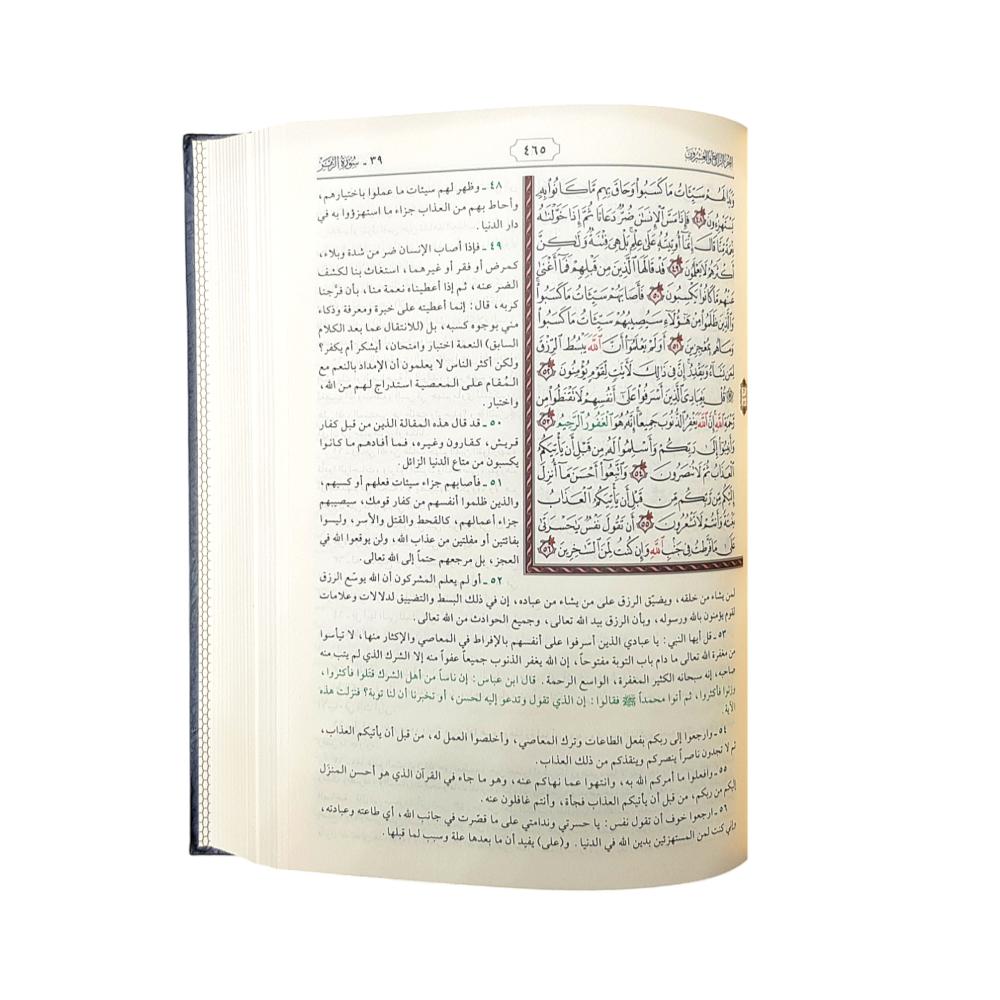 الجزء الرابع والعشرون
٤٦٥
٣٩ ـ سورة الزمر
وَبَدَا لَهُمْ سَيِّئَاتُ مَا كَسَبُوا۟ وَحَاقَ بِهِم مَّا كَانُوا۟ بِهِۦ
يَسْتَهْزِءُونَ ٤٨ فَإِذَا مَسَّ ٱلْإِنسَٰنَ ضُرٌّ دَعَانَا ثُمَّ إِذَا خَوَّلْنَٰهُ
نِعْمَةً مِّنَّا قَالَ إِنَّمَآ أُوتِيتُهُۥ عَلَىٰ عِلْمٍۭ بَلْ هِىَ فِتْنَةٌ وَلَٰكِنَّ
أَكْثَرَهُمْ لَا يَعْلَمُونَ ٤٩ قَدْ قَالَهَا ٱلَّذِينَ مِن قَبْلِهِمْ فَمَآ أَغْنَىٰ
عَنْهُم مَّا كَانُوا۟ يَكْسِبُونَ ٥٠ فَأَصَابَهُمْ سَيِّئَاتُ مَا كَسَبُوا۟
وَٱلَّذِينَ ظَلَمُوا۟ مِنْ هَٰٓؤُلَآءِ سَيُصِيبُهُمْ سَيِّئَاتُ مَا كَسَبُوا۟
وَمَا هُم بِمُعْجِزِينَ ٥١ أَوَلَمْ يَعْلَمُوٓا۟ أَنَّ ٱللَّهَ يَبْسُطُ ٱلرِّزْقَ
لِمَن يَشَآءُ وَيَقْدِرُ إِنَّ فِى ذَٰلِكَ لَءَايَٰتٍ لِّقَوْمٍ يُؤْمِنُونَ ٥٢
۞ قُلْ يَٰعِبَادِىَ ٱلَّذِينَ أَسْرَفُوا۟ عَلَىٰٓ أَنفُسِهِمْ لَا تَقْنَطُوا۟ مِن
رَّحْمَةِ ٱللَّهِ إِنَّ ٱللَّهَ يَغْفِرُ ٱلذُّنُوبَ جَمِيعًا إِنَّهُۥ هُوَ ٱلْغَفُورُ ٱلرَّحِيمُ ٥٣
وَأَنِيبُوٓا۟ إِلَىٰ رَبِّكُمْ وَأَسْلِمُوا۟ لَهُۥ مِن قَبْلِ أَن يَأْتِيَكُمُ
ٱلْعَذَابُ ثُمَّ لَا تُنصَرُونَ ٥٤ وَٱتَّبِعُوٓا۟ أَحْسَنَ مَآ أُنزِلَ
إِلَيْكُم مِّن رَّبِّكُم مِّن قَبْلِ أَن يَأْتِيَكُمُ ٱلْعَذَابُ
بَغْتَةً وَأَنتُمْ لَا تَشْعُرُونَ ٥٥ أَن تَقُولَ نَفْسٌ يَٰحَسْرَتَىٰ
عَلَىٰ مَا فَرَّطتُ فِى جَنۢبِ ٱللَّهِ وَإِن كُنتُ لَمِنَ ٱلسَّٰخِرِينَ ٥٦
٤٨ ـ وظهر لهم سيئات ما عملوا باختيارهم،
وأحاط بهم من العذاب جزاء ما استهزؤوا به في
دار الدنيا.
٤٩ ـ فإذا أصاب الإنسان ضر من شدة وبلاء،
كمرض أو فقر أو غيرهما، استغاث بنا لكشف
الضر عنه، ثم إذا أعطيناه نعمة منا، بأن فرَّجنا
كربه، قال: إنما أعطيته على خبرة ومعرفة وذكاء
مني بوجوه كسبه، بل (للانتقال عما بعد الكلام
السابق) النعمة اختبار وامتحان، أيشكر أم يكفر؟
ولكن أكثر الناس لا يعلمون أن الإمداد بالنعم مع
المُقام على المعصية استدراج لهم من الله،
واختبار.
٥٠ ـ قد قال هذه المقالة الذين من قبل كفار
قريش، كقارون وغيره، فما أفادهم ما كانوا
يكسبون من متاع الدنيا الزائل.
٥١ ـ فأصابهم جزاء سيئات فعلهم أو كسبهم،
والذين ظلموا أنفسهم من كفار قومك، سيصيبهم
جزاء أعمالهم، كالقحط والقتل والأسر، وليسوا
بفائتين أو مفلتين من عذاب الله، ولن يوقعوا الله في
العجز، بل مرجعهم حتماً إلى الله تعالى.
٥٢ ـ أو لم يعلم المشركون أن الله يوسّع الرزق
لمن يشاء من خلقه، ويضيّق الرزق على من يشاء من عباده، إن في ذلك البسط والتضييق لدلالات وعلامات
لقوم يؤمنون بالله ورسوله، وبأن الرزق بيد الله تعالى، وجميع الحوادث من الله تعالى.
٥٣ ـ قل أيها النبي: يا عبادي الذين أسرفوا على أنفسهم بالإفراط في المعاصي والإكثار منها، لا تيأسوا
من مغفرة الله تعالى ما دام باب التوبة مفتوحاً، إن الله يغفر الذنوب جميعاً عفواً منه إلا الشرك الذي لم يتب منه
صاحبه، إنه سبحانه الكثير المغفرة، الواسع الرحمة. قال ابن عباس: إن ناساً من أهل الشرك قتلوا فأكثروا،
وزنوا فأكثروا، ثم أتوا محمداً ﷺ فقالوا: إن الذي تقول وتدعو إليه لحسن، أو تخبرنا أن لنا توبة؟ فنزلت هذه
الآية.
٥٤ ـ وارجعوا إلى ربكم بفعل الطاعات وترك المعاصي، وأخلصوا العمل له، من قبل أن يأتيكم العذاب،
ثم لا تجدون ناصراً ينصركم وينقذكم من ذلك العذاب.
٥٥ ـ وافعلوا ما أمركم الله به، وانتهوا عما نهاكم عنه، وهو ما جاء في القرآن الذي هو أحسن المنزّل
إليكم من ربكم، من قبل أن يأتيكم العذاب فجأة، وأنتم غافلون عنه.
٥٦ ـ ارجعوا خوف أن تقول نفس: يا حسرتي وندامتي على ما قصّرت في جانب الله، أي طاعته وعبادته،
وإني كنت لمن المستهزئين بدين الله في الدنيا. و(على) يفيد أن ما بعدها علة وسبب لما قبلها.